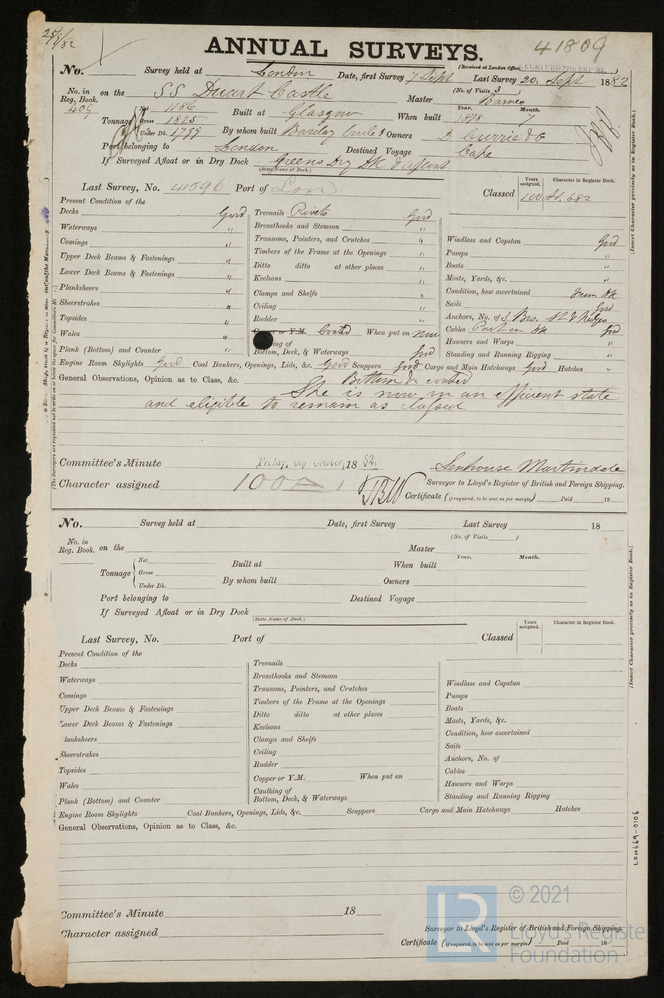 ANNUAL SURVEYS.
41809
No. Survey held at London Date, first Survey 7 Sept Last Survey 20. Sept 1882
(Received at London Office
(No. of Visits 3
No. in Reg. Book. on the SS Duart Castle Master Barnes
409
Tonnage Net 1186 Built at Glasgow When built Year. 1878 Month. 7
Gross 1825
Under Dk. 1799 By whom built Barclay Curle & Owners D Currie & Co
Port belonging to London Destined Voyage Cape
If Surveyed Afloat or in Dry Dock Greens Dry Dk & afloat
(State Name of Dock.)
Last Survey, No. 41596 Port of Lon Classed Years assigned. 100 Character in Register Book. A1. 6.82
Present Condition of the
Decks Good
Waterways "
Comings "
Upper Deck Beams & Fastenings "
Lower Deck Beams & Fastenings "
Planksheers "
Sheerstrakes "
Topsides "
Wales "
Plank (Bottom) and Counter "
Treenails Rivets Good
Breasthooks and Stemson "
Transoms, Pointers, and Crutches "
Timbers of the Frame at the Openings "
Ditto ditto at other places "
Keelsons "
Clamps and Shelfs "
Ceiling "
Rudder "
Copper or Y.M. Coated When put on New
ing of
Bottom, Deck, & Waterways Good
Windlass and Capstan Good
Pumps "
Boats "
Masts, Yards, &c. "
Condition, how ascertained from Dk
Sails Good
Anchors, No. of
Cables Part on Dk Good
Hawsers and Warps "
Standing and Running Rigging "
Engine Room Skylights Good Coal Bunkers, Openings, Lids, &c. Good Scuppers Good Cargo and Main Hatchways Good Hatches "
General Observations, Opinion as to Class, &c. Bottom re coated
She is now in an efficient state
and eligible to remain as classed
Committee's Minute Friday, 6th October, 1882.
Senhouse Martindale
Character assigned 100 A 1
Surveyor to Lloyd's Register of British and Foreign Shipping.
Certificate (if required, to be sent as per margin) Paid 18
No. Survey held at Date, first Survey Last Survey 18
(No. of Visits )
No. in Reg. Book. on the Master
Tonnage Net Built at When built Year. Month.
Gross
Under Dk. By whom built Owners
Port belonging to Destined Voyage
If Surveyed Afloat or in Dry Dock
(State Name of Dock.)
Last Survey, No. Port of Classed Years assigned. Character in Register Book.
Present Condition of the
Decks
Waterways
Comings
Upper Deck Beams & Fastenings
Lower Deck Beams & Fastenings
lanksheers
Sheerstrakes
Topsides
Wales
Plank (Bottom) and Counter
Treenails
Breasthooks and Stemson
Transoms, Pointers, and Crutches
Timbers of the Frame at the Openings
Ditto ditto at other places
Keelsons
Clamps and Shelfs
Ceiling
Rudder
Copper or Y.M. When put on
Caulking of
Bottom, Deck, & Waterways
Windlass and Capstan
Pumps
Boats
Masts, Yards, &c.
Condition, how ascertained
Sails
Anchors, No. of
Cables
Hawsers and Warps
Standing and Running Rigging
Engine Room Skylights Coal Bunkers, Openings, Lids, &c. Scuppers Cargo and Main Hatchways Hatches
General Observations, Opinion as to Class, &c.
Committee's Minute 18
Character assigned
Surveyor to Lloyd's Register of British and Foreign Shipping.
Certificate (if required, to be sent as per margin) Paid 18
(Insert Character precisely as in Register Book.)
(Insert Character precisely as in Register Book.)
LON669-0106
LR
© 2021
Lloyd's Register
Foundation